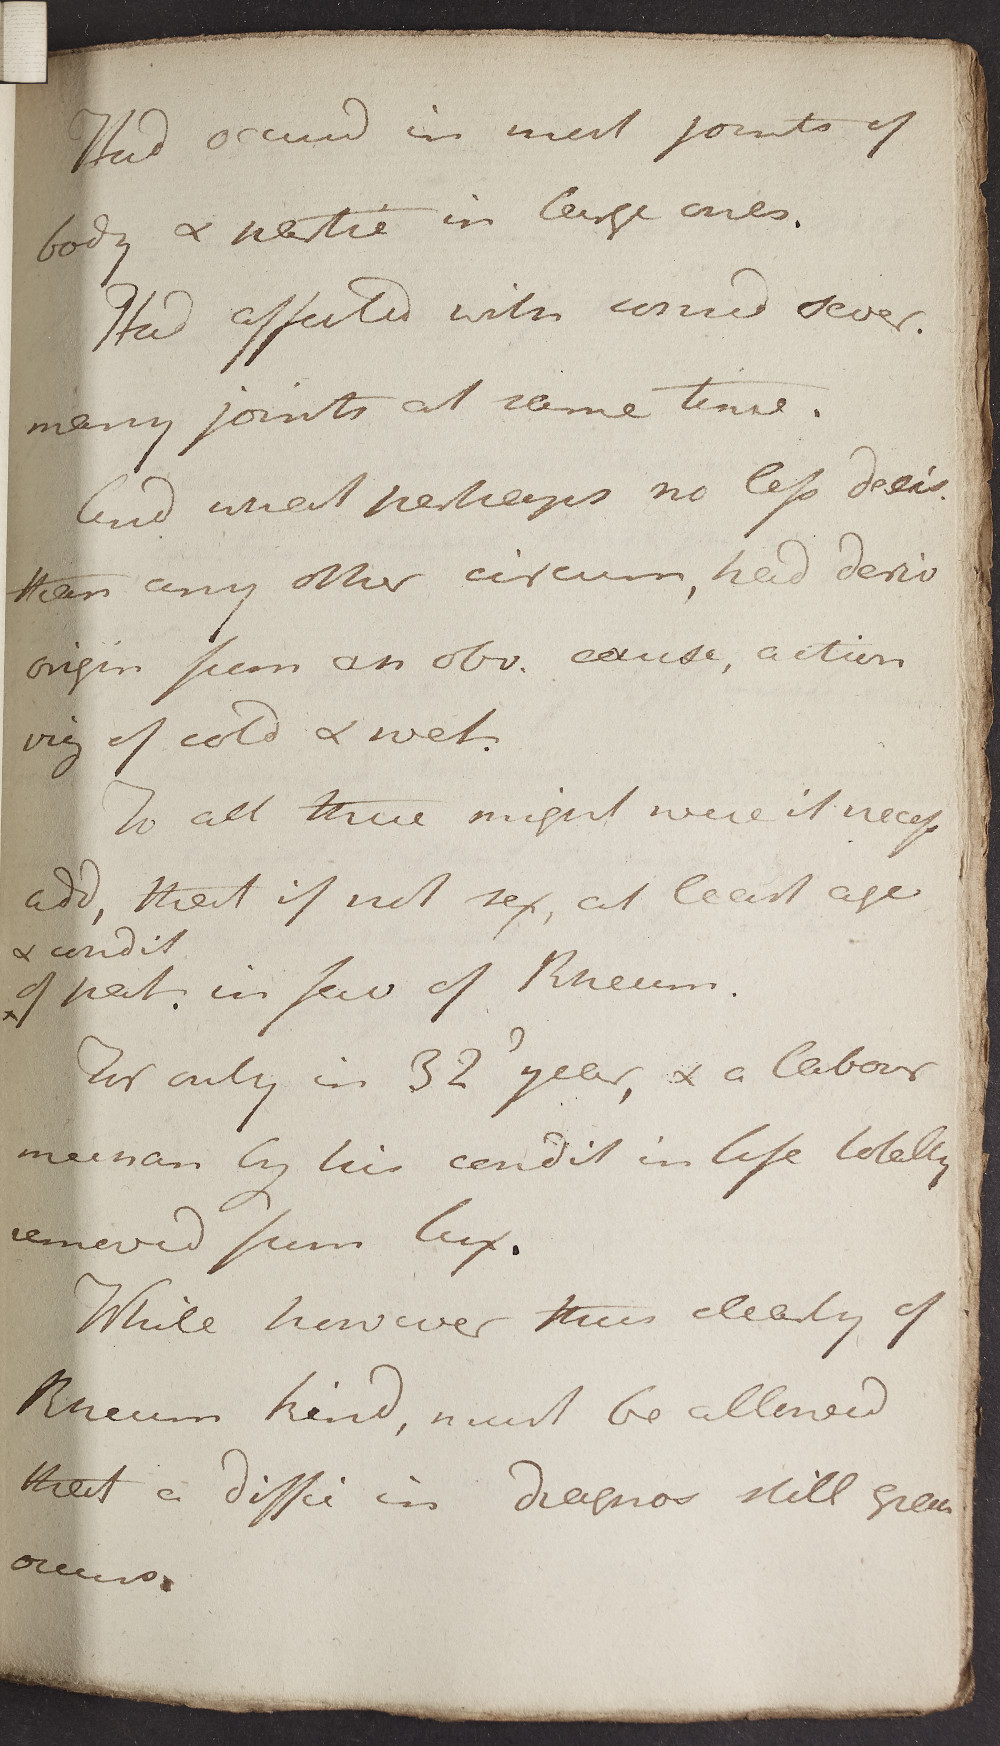 Had occured in most joints of
body & partic in large ones.
Had affected with considd sever.
many joints at same time.
And what perhaps no less decis.
than any other circum, had deriv
origin from an obv. cause, action
viz of cold & wet.
To all these might were it necess
add, that if not sex, at least age
& condit
of pat. in fav of Rheum.
For only in 32d year, & a labour
man by his condit in life totally
removed from lux.
While however thus clearly of
Rheum kind, must be allowed
that a diffic in diagnos still
occurs.